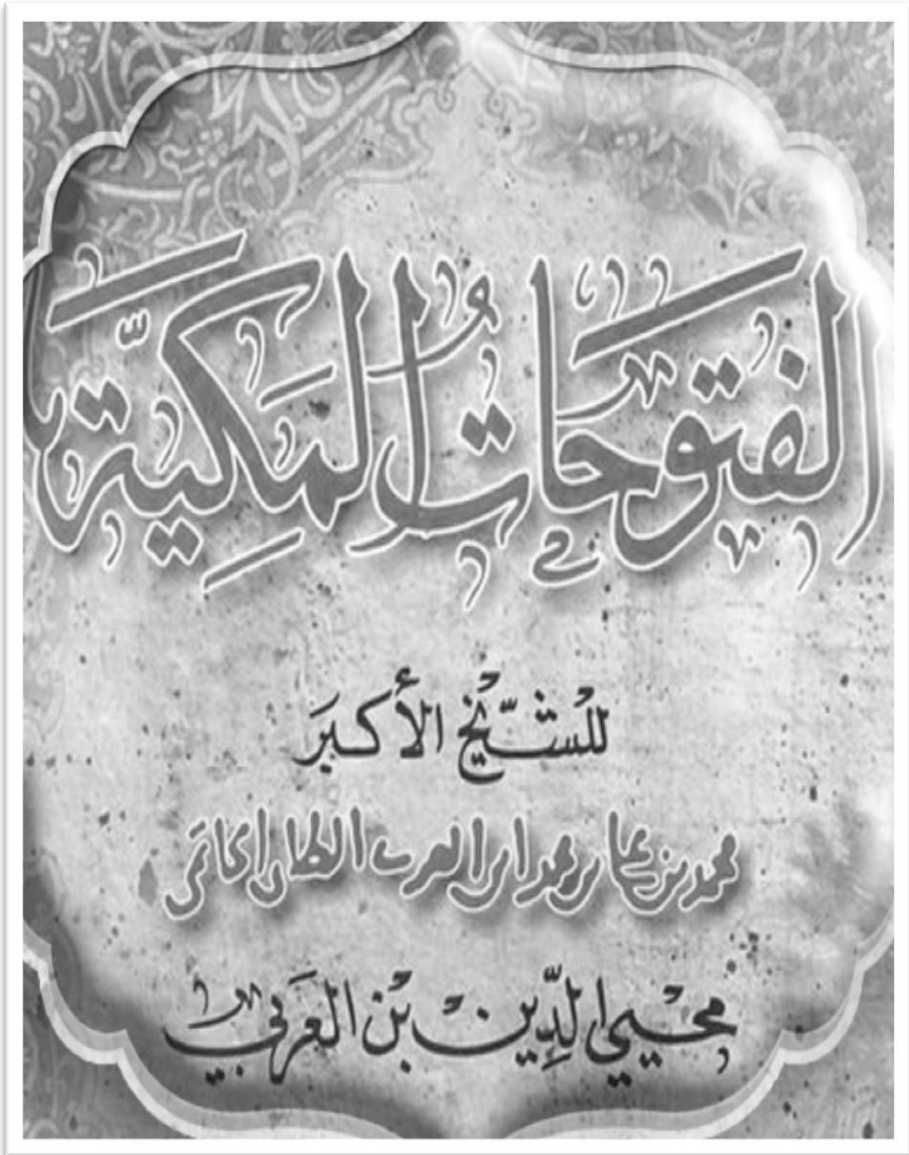 الفُتُوحَاتُ المَكِيَّة
للشَّيْخ الأكبَر
محمد بن علي بن محمد ابن العربي الطائي الحاتمي
محيي الدِّين بْن العَرَبي